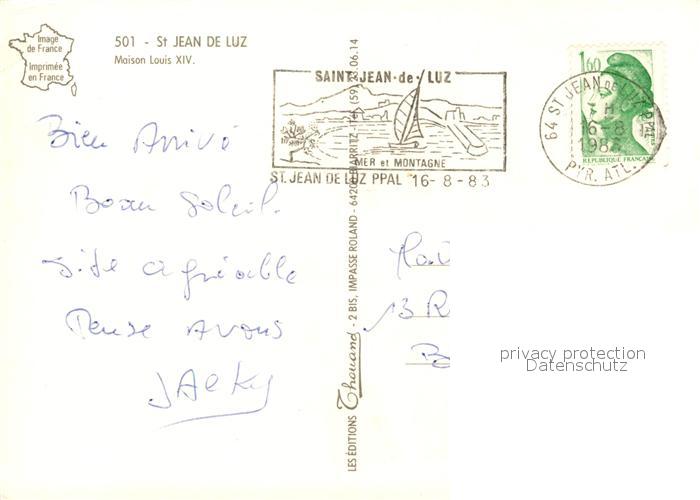 Image
de France
Imprimée
en France
501 - St JEAN DE LUZ
Maison Louis XIV.
Bien Arrivé
Beau Soleil.
Site agréable
Pense Avous
JACKY
LES ÉDITIONS Thouand - 2 BIS, IMPASSE ROLAND - 64200 BIARRITZ - Tél. (59) 23.06.14
SAINT·JEAN·de·LUZ
MER et MONTAGNE
ST. JEAN DE LUZ PPAL 16-8-83
64 ST JEAN DE LUZ PPAL
H
16-8
PYR. ATL.
1,60
REPUBLIQUE FRANCAISE
13 R
privacy protection
Datenschutz